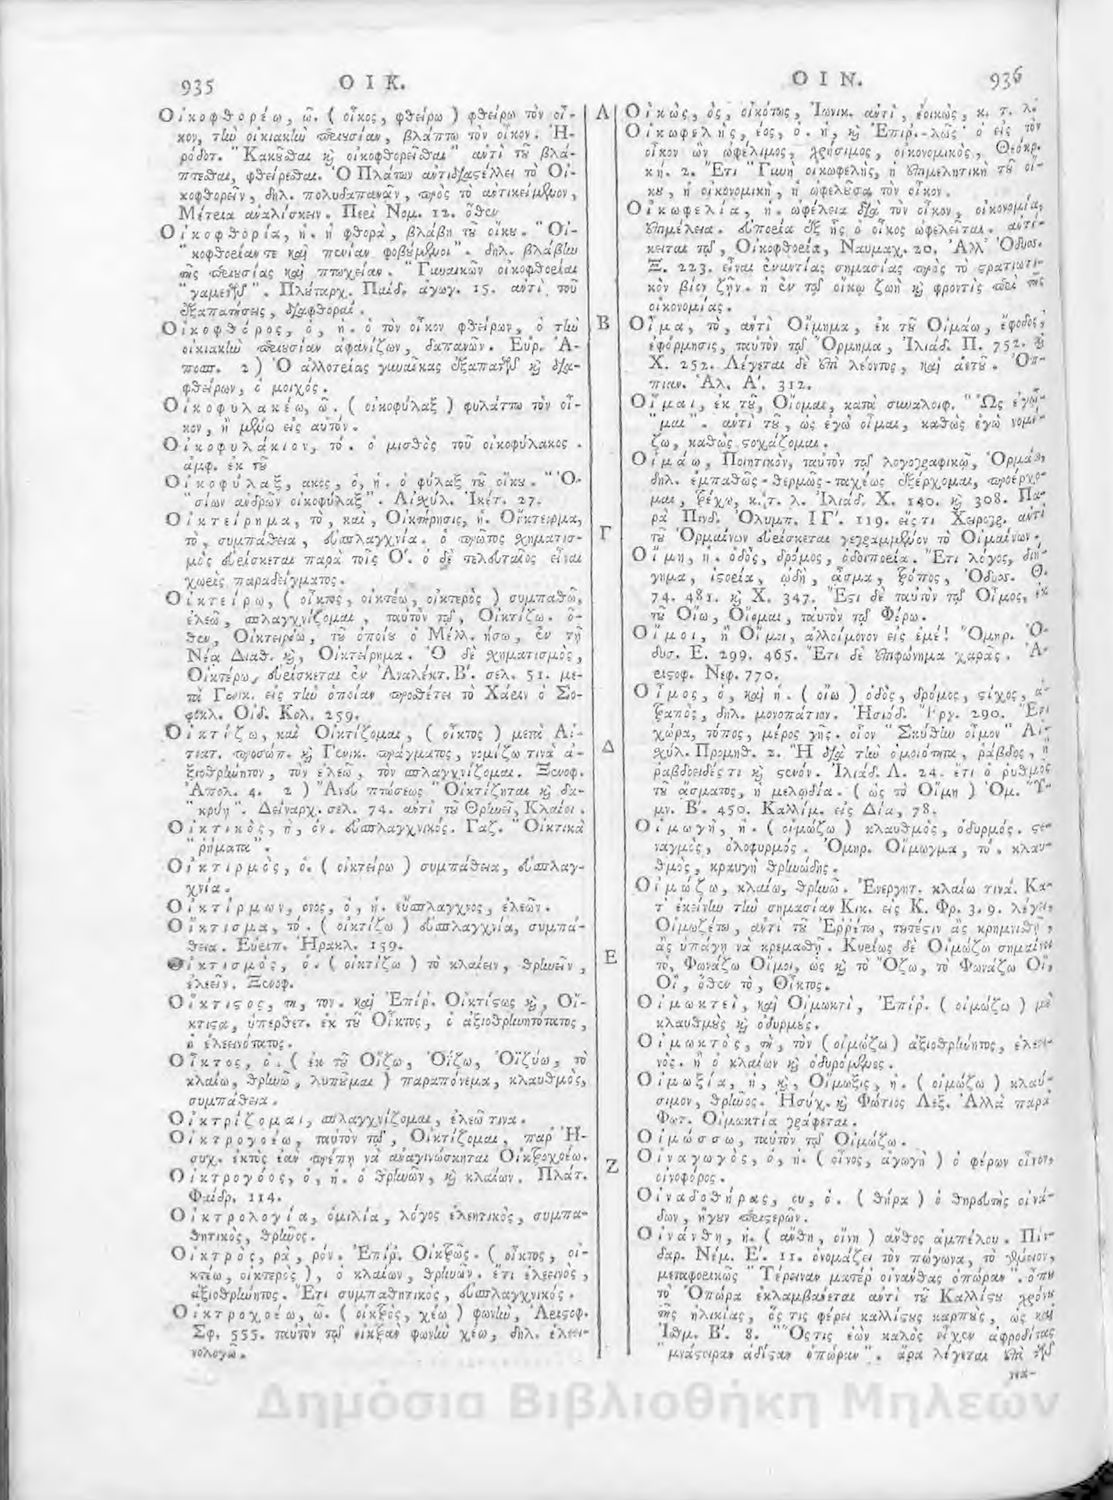 935 ΟΙΚ.
Οἰκοφθορέω, ῶ. ( οἶκος, φθείρω ) φθείρω τὸν οἶ-
κον, τὴν οἰκιακὴν περιουσίαν, βλάπτω τὸν οἶκον. Ἡ-
ρόδοτ. "Κακοῦσθαι καὶ οἰκοφθορεῖσθαι" ἀντὶ τοῦ βλά-
πτεσθαι, φθείρεσθαι. Ὁ Πλάτων ἀντιδιαστέλλει τὸ Οἰ-
κοφθορεῖν, δηλ. πολυδαπανᾷν, πρὸς τὸ ἀντικείμενον,
Μέτρια ἀναλίσκειν. Περὶ Νομ. 12. ὅθεν
Οἰκοφθορία, ἡ. ἡ φθορά, βλάβη τοῦ οἴκου. "Οἰ-
"κοφθορίαν τε καὶ πενίαν φοβούμενοι". δηλ. βλάβην
τῆς περιουσίας καὶ πτωχείαν. "Γυναικῶν οἰκοφθορίαι
"γαμετῶν". Πλούταρχ. Παιδ. ἀγωγ. 15. ἀντὶ τοῦ
ἐξαπατήσεις, διαφθοραί.
Οἰκοφθόρος, ὁ, ἡ. ὁ τὸν οἶκον φθείρων, ὁ τὴν
οἰκιακὴν περιουσίαν ἀφανίζων, δαπανῶν. Εὐρ. Ἀ-
ποσπ. 2 ) Ὁ ἀλλοτρίας γυναῖκας ἐξαπατῶν καὶ δια-
φθείρων, ὁ μοιχός.
Οἰκοφυλακέω, ῶ. ( οἰκοφύλαξ ) φυλάττω τὸν οἶ-
κον, ἢ μένω εἰς αὐτόν.
Οἰκοφυλάκιον, τό. ὁ μισθὸς τοῦ οἰκοφύλακος.
ἀμφ. ἐκ τοῦ
Οἰκοφύλαξ, ακος, ὁ, ἡ. ὁ φύλαξ τοῦ οἴκου. "Ὁ-
"σίων ἀνδρῶν οἰκοφύλαξ". Αἰσχύλ. Ἱκέτ. 27.
Οἰκτείρημα, τὸ, καὶ, Οἰκτήρησις, ἡ. Οἴκτειρμα,
τὸ, συμπάθεια, εὐσπλαγχνία. ὁ πρῶτος σχηματισ-
μὸς εὑρίσκεται παρὰ τοῖς Ο'. ὁ δὲ τελευταῖος εἶναι
χωρὶς παραδείγματος.
Οἰκτείρω, ( οἶκτος, οἰκτέω, οἰκτερὸς ) συμπαθῶ,
ἐλεῶ, σπλαγχνίζομαι, ταὐτὸν τῷ, Οἰκτίζω. ὅ-
θεν, Οἰκτειρέω, τοῦ ὁποίου ὁ Μέλλ. ήσω, ἐν τῇ
Νέᾳ Διαθ. καὶ, Οἰκτείρημα. Ὁ δὲ σχηματισμὸς,
Οἰκτέρω, εὑρίσκεται ἐν Ἀναλέκτ. Β'. σελ. 51. με-
τὰ Γενικ. εἰς τὴν ὁποίαν προσθέτει τὸ Χάριν ὁ Σο-
φοκλ. Οἰδ. Κολ. 259.
Οἰκτίζω, καὶ Οἰκτίζομαι, ( οἶκτος ) μετὰ Αἰ-
τιατ. προσώπ. καὶ Γενικ. πράγματος, νομίζω τινὰ ἀ-
ξιοθρήνητον, τὸν ἐλεῶ, τὸν σπλαγχνίζομαι. Ξενοφ.
Ἀπολ. 4. 2 ) Ἄνευ πτώσεως "Οἰκτίζηται καὶ δα-
"κρύῃ". Δείναρχ. σελ. 74. ἀντὶ τοῦ Θρηνεῖ, Κλαίει.
Οἰκτικὸς, ή, όν. εὐσπλαγχνικός. Γαζ. "Οἰκτικὰ
"ῥήματα".
Οἰκτιρμὸς, ὁ. ( οἰκτείρω ) συμπάθεια, εὐσπλαγ-
χνία.
Οἰκτίρμων, ονος, ὁ, ἡ. εὔσπλαγχνος, ἐλεῶν.
Οἴκτισμα, τό. ( οἰκτίζω ) εὐσπλαγχνία, συμπά-
θεια. Εὐριπ. Ἡρακλ. 159.
Οἰκτισμὸς, ὁ. ( οἰκτίζω ) τὸ κλαίειν, θρηνεῖν,
ἐλεεῖν. Ξενοφ.
Οἴκτιστος, τη, τον. καὶ Ἐπίρ. Οἰκτίστως καὶ, Οἴ-
κτιστα, ὑπερθετ. ἐκ τοῦ Οἶκτος, ὁ ἀξιοθρηνητότατος,
ὁ ἐλεεινότατος.
Οἶκτος, ὁ. ( ἐκ τοῦ Οἴζω, Ὀίζω, Ὀϊζύω, τὸ
κλαίω, θρηνῶ, λυποῦμαι ) παραπόνεμα, κλαυθμὸς,
συμπάθεια.
Οἰκτρίζομαι, σπλαγχνίζομαι, ἐλεῶ τινα.
Οἰκτρογοέω, ταὐτὸν τῷ, Οἰκτίζομαι, παρ' Ἡ-
συχ. ἐκτὸς ἐὰν πρέπῃ νὰ ἀναγινώσκηται Οἰκτροχοέω.
Οἰκτρογόος, ὁ, ἡ. ὁ θρηνῶν, καὶ κλαίων. Πλάτ.
Φαίδρ. 114.
Οἰκτρολογία, ὁμιλία, λόγος ἐλεητικὸς, συμπα-
θητικὸς, θρῆνος.
Οἰκτρὸς, ρὰ, ρόν. Ἐπίρ. Οἰκτρῶς. ( οἶκτος, οἰ-
κτέω, οἰκτερὸς ), ὁ κλαίων, θρηνῶν. ἔτι ἐλεεινὸς,
ἀξιοθρήνητος. Ἔτι συμπαθητικὸς, εὐσπλαγχνικός.
Οἰκτροχοέω, ῶ. ( οἰκτρὸς, χέω ) φωνὴν, Ἀριστοφ.
Σφ. 555. ταὐτὸν τῷ οἰκτρὰν φωνὴν χέω, δηλ. ἐλεει-
νολογῶ.
Α
Β
Γ
Δ
Ε
Ζ
ΟΙΝ. 936
Οἰκὼς, ὸς, οἰκότως, Ἰωνικ. ἀντὶ, ἐοικὼς, κ. τ. λ.
Οἰκωφελὴς, έος, ὁ. ἡ, καὶ Ἐπίρ.-λῶς· ὁ εἰς τὸν
οἶκον ὢν ὠφέλιμος, χρήσιμος, οἰκονομικὸς, Θεόκρ.
κη. 2. "Ἔτι "Γυνὴ οἰκωφελὴς, ἡ ἐπιμελητικὴ τοῦ οἴ-
κου, ἡ οἰκονομικὴ, ἡ ὠφελοῦσα τὸν οἶκον.
Οἰκωφελία, ἡ. ὠφέλεια διὰ τὸν οἶκον, οἰκονομία,
ἐπιμέλεια. εὐπορία ἐξ ἧς ὁ οἶκος ὠφελεῖται. ἀντί-
κειται τῷ, Οἰκοφθορία, Ναυμαχ. 20. Ἀλλ' Ὀδυσ.
Ξ. 223. εἶναι ἐναντίας σημασίας πρὸς τὸ στρατιωτι-
κὸν βίον ζῆν. ἡ ἐν τῷ οἴκῳ ζωὴ καὶ φροντὶς περὶ τῆς
οἰκονομίας.
Οἶμα, τὸ, ἀντὶ Οἴμημα, ἐκ τοῦ Οἰμάω, ἔφοδος,
ἐφόρμησις, ταὐτὸν τῷ Ὅρμημα, Ἰλιάδ. Π. 752. καὶ
Χ. 252. Λέγεται δὲ ἐπὶ λέοντος, καὶ ἀετοῦ. Ὀπ-
πιαν. Ἁλ. Α'. 312.
Οἶμαι, ἐκ τοῦ, Οἴομαι, κατὰ συναλοιφ. "Ὡς ἐγᾦ-
"μαι". ἀντὶ τοῦ, ὡς ἐγὼ οἶμαι, καθὼς ἐγὼ νομί-
ζω, καθὼς στοχάζομαι.
Οἰμάω, Ποιητικὸν, ταὐτὸν τῷ λογογραφικῷ, Ὁρμάω,
δηλ. ἐμπαθῶς-θερμῶς-ταχέως ἐξέρχομαι, προέρχο-
μαι, τρέχω, κ. τ. λ. Ἰλιάδ. Χ. 140. καὶ 308. Πα-
ρὰ Πινδ. Ὀλυμπ. ΙΓ'. 119. εἴς τι Χειρογρ. ἀντὶ
τοῦ Ὁρμαίνων εὑρίσκεται γεγραμμένον τὸ Οἰμαίνων.
Οἴμη, ἡ. ὁδὸς, δρόμος, ὁδοιπορία. Ἔτι λόγος, διή-
γημα, ἱστορία, ᾠδὴ, ᾆσμα, τρόπος, Ὀδυσ. Θ.
74. 481. καὶ Χ. 347. Ἔστι δὲ ταὐτὸν τῷ Οἶμος, ἐκ
τοῦ Οἴω, Οἴομαι, ταὐτὸν τῷ Φέρω.
Οἴμοι, ἢ Οἴ μοι, ἀλλοίμονον εἰς ἐμέ! Ὅμηρ. Ὀ-
δυσ. Ε. 299. 465. Ἔτι δὲ ἐπιφώνημα χαρᾶς. Ἀ-
ριστοφ. Νεφ. 770.
Οἶμος, ὁ, καὶ ἡ. ( οἴω ) ὁδὸς, δρόμος, στίχος, ἀ-
τραπὸς, δηλ. μονοπάτιον. Ἡσιόδ. Ἔργ. 290. Ἔτι
χώρα, τόπος, μέρος γῆς. οἷον "Σκύθην οἶμον" Αἰσ-
χύλ. Προμηθ. 2. Ἢ διὰ τὴν ὁμοιότητα, ῥάβδος, ἢ
ῥαβδοειδές τι καὶ στενόν. Ἰλιάδ. Λ. 24. ἔτι ὁ ῥυθμὸς
τοῦ ᾄσματος, ἡ μελῳδία. ( ὡς τὸ Οἴμη ) Ὁμ. Ὕ-
μν. Β'. 450. Καλλίμ. εἰς Δία, 78.
Οἰμωγὴ, ἡ. ( οἰμώζω ) κλαυθμὸς, ὀδυρμὸς, στε-
ναγμὸς, ὀλοφυρμός. Ὅμηρ. Οἴμωγμα, τό. κλαυ-
θμὸς, κραυγὴ θρηνώδης.
Οἰμώζω, κλαίω, θρηνῶ. Ἐνεργητ. κλαίω τινά. Κα-
τ' ἐκείνην τὴν σημασίαν Κικ. εἰς Κ. Φρ. 3. 9. λέγει,
Οἰμωζέτω, ἀντὶ τοῦ Ἐρρέτω, τουτέστιν ἂς κρημνισθῇ,
ἂς ὑπάγῃ νὰ κρεμασθῇ. Κυρίως δὲ Οἰμώζω σημαίνει
τὸ, Φωνάζω Οἴμοι, ὡς καὶ τὸ Ὄζω, τὸ Φωνάζω Οἲ,
Οἲ, ὅθεν τὸ, Οἶκτος.
Οἰμωκτεὶ, καὶ Οἰμωκτὶ, Ἐπίρ. ( οἰμώζω ) μὲ
κλαυθμοὺς καὶ ὀδυρμούς.
Οἰμωκτὸς, τὴ, τὸν ( οἰμώζω ) ἀξιοθρήνητος, ἐλεει-
νός. ἢ ὁ κλαίων καὶ ὀδυρόμενος.
Οἰμωξία, ἡ, καὶ, Οἴμωξις, ἡ. ( οἰμώζω ) κλαύ-
σιμον, θρῆνος. Ἡσύχ. καὶ Φώτιος Λεξ. Ἀλλὰ παρὰ
Φωτ. Οἰμωκτία γράφεται.
Οἰμώσσω, ταὐτὸν τῷ Οἰμώζω.
Οἰναγωγὸς, ὁ, ἡ. ( οἶνος, ἀγωγὴ ) ὁ φέρων οἶνον,
οἰνοφόρος.
Οἰναδοθήρας, ου, ὁ. ( θήρα ) ὁ θηρευτὴς οἰνά-
δων, ἤγουν περιστερῶν.
Οἰνάνθη, ἡ. ( ἄνθη, οἴνη ) ἄνθος ἀμπέλου. Πίν-
δαρ. Νέμ. Ε'. 11. ὀνομάζει τὸν πώγωνα, τὸ γένειον,
μεταφορικῶς "Τέρειναν ματέρ οἰνάνθας ὀπώραν". ὅπου
τὸ Ὀπώρα ἐκλαμβάνεται ἀντὶ τοῦ Καλλίστου χρόνου
τῆς ἡλικίας, ὅς τις φέρει καλλίστους καρποὺς, ὡς καὶ
Ἰσθμ. Β'. 8. "Ὅστις ἐὼν καλὸς εἶχεν ἀφροδίτας
"μνάστειραν ἁδίσταν ὀπώραν". ἄρα λέγεται ἐπὶ τῶν
Δημόσια Βιβλιοθήκη Μηλεών